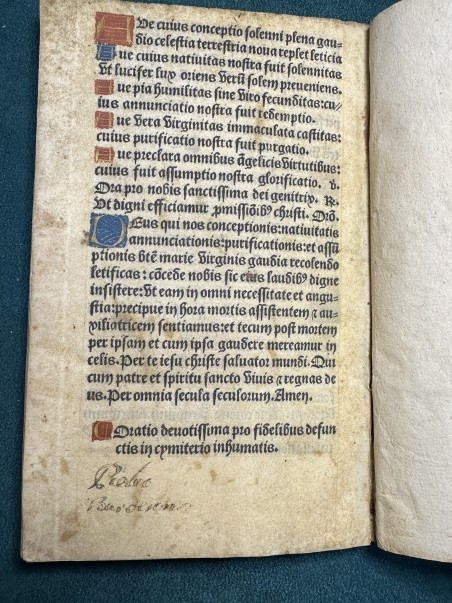 AVe cuius conceptio solenni plena gau-
dio celestia terrestria noua replet leticia
Aue cuius natiuitas nostra fuit solennitas
Vt lucifer lux oriens verũ solem preueniens.
Aue pia humilitas sine viro fecunditas: cu-
ius annunciatio nostra fuit redemptio.
Aue vera virginitas immaculata castitas:
cuius purificatio nostra fuit purgatio.
Aue preclara omnibus ãgelicis virtutibus:
cuius fuit assumptio nostra glorificatio. ℣.
Ora pro nobis sanctissima dei genitrix. ℟.
Vt digni efficiamur ꝓmissiõibꝰ christi. Orõ.
DEus qui nos conceptionis: natiuitatis
annunciationis: purificationis: et assũ
ptionis btẽ marie virginis gaudia recolendo
letificas: cõcede nobis sic eius laudibꝰ digne
insistere: vt eam in omni necessitate et angu-
stia: precipue in hora mortis assistentem ⁊ au-
xiliatricem sentiamus: et tecum post mortem
per ipsam et cum ipsa gaudere mereamur in
celis. Per te iesu christe saluator mundi. Qui
cum patre et spiritu sancto viuis ⁊ regnas de
us. Per omnia secula seculorum. Amen.
Oratio deuotissima pro fidelibus defun
ctis in cymiterio inhumatis.